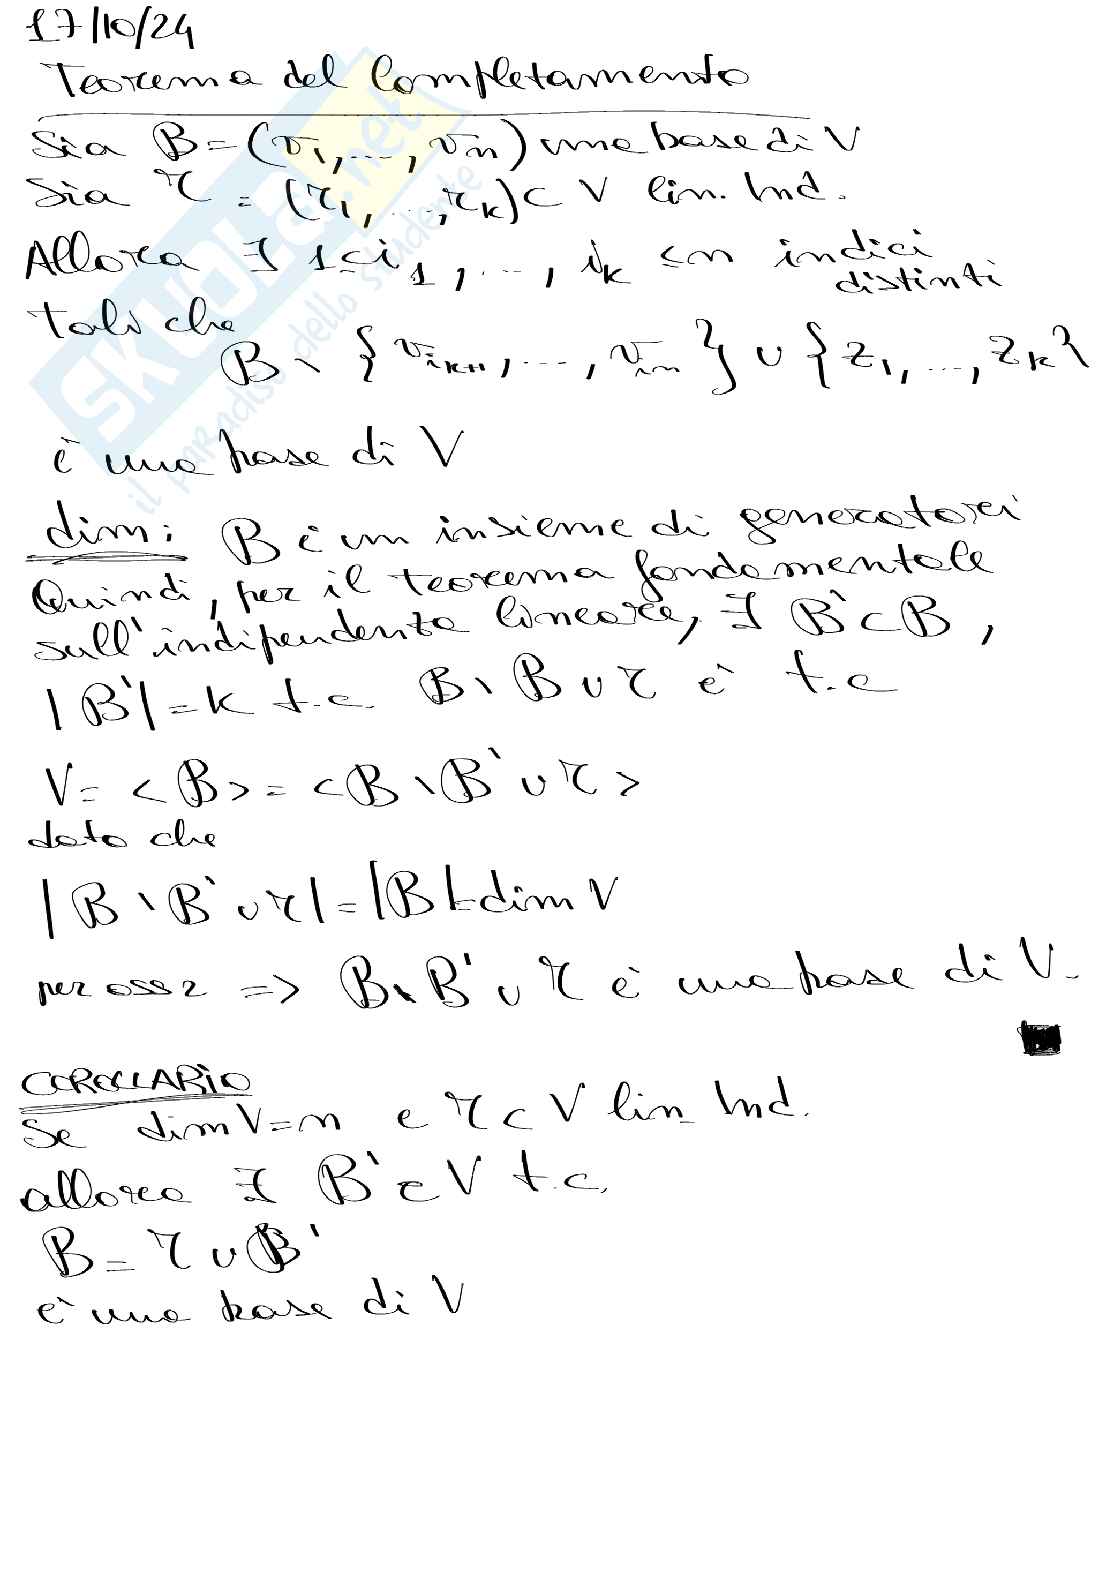 17/10/24
Teorema del Completamento
Sia B=(v₁,...,vₙ) una base di V
Sia τ = (τ₁,...,τₖ)⊂ V lin. Ind.
Allora ∃ 1≤i₁,...,iₖ ≤n indici
distinti
tali che
B \ {v_{iₖ₊₁},...,v_{iₙ}} ∪ {z₁,...,zₖ}
è una base di V
dim: B è un insieme di generatori
Quindi, per il teorema fondamentale
sull'indipendenza lineare, ∃ B'⊂B,
|B'|=k t.c. B\B∪τ è t.c
V= <B>=<B\B'∪τ>
dato che
|B\B'∪τ|=|B|=dim V
per oss 2 => B\B'∪τ è una base di V.
COROLLARIO
Se dim V=n e τ⊂V lin. Ind.
allora ∃ B'⊂V t.c.
B=τ∪B'
è una base di V
SKUOLA.net
il paradiso dello studente